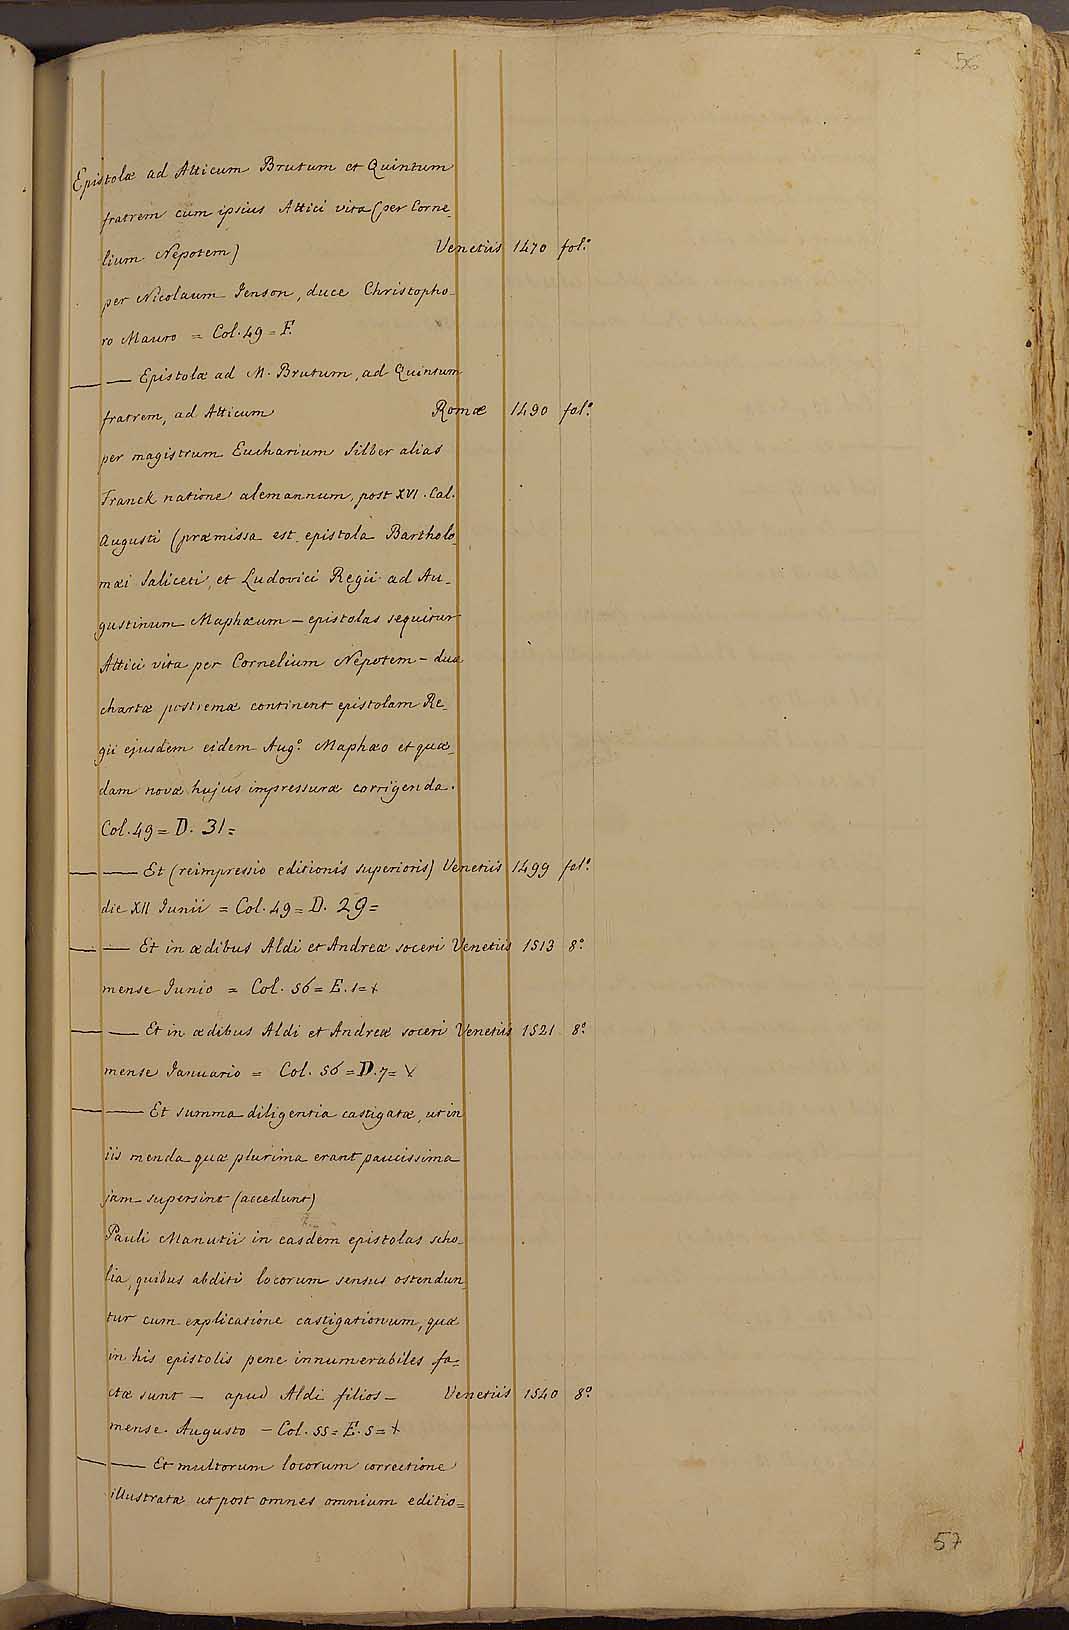 56
Epistolæ ad Atticum Brutum et Quintum
fratrem cum ipsius Attici vita (per Corne_
lium Nepotem) Venetiis 1470 fol.º
per Nicolaum Jenson, duce Christopho_
ro Mauro = Col. 49 = F.
— — Epistolæ ad M. Brutum, ad Quintum
fratrem, ad Atticum Romæ 1490 fol.º
per magistrum Eucharium Silber alias
Franck natione alemannum, post XVI. Cal.
Augusti (præmissa est epistola Bartholo_
mæi Saliceti, et Ludovici Regii ad Au_
gustinum Maphæum — epistolas sequitur
Attici vita per Cornelium Nepotem — duæ
chartæ postremæ continent epistolam Re_
gii ejusdem eidem Aug.º Maphæo et quæ_
dam novæ hujus impressuræ corrigenda.
Col. 49 = D. 31 =
— — Et (reimpressio editionis superioris) Venetiis 1499 fol.º
die XII Junii = Col. 49 = D. 29 =
— — Et in ædibus Aldi et Andreæ soceri Venetiis 1513 8.º
mense Junio = Col. 56 = E. 1 = +
— — Et in ædibus Aldi et Andreæ soceri Venetiis 1521 8.º
mense Januario = Col. 56 = D. 7 = +
— — Et summa diligentia castigatæ, ut in
iis menda quæ plurima erant paucissima
jam supersint (accedunt)
Pauli Manutii in easdem epistolas scho_
lia, quibus abditi locorum sensus ostendun_
tur cum explicatione castigationum, quæ
in his epistolis pene innumerabiles fa=
ctæ sunt — apud Aldi filios — Venetiis 1540 8.º
mense Augusto — Col. 55 = E. 5 = +
— — Et multorum locorum correctione
illustratæ ut post omnes omnium editio=
57